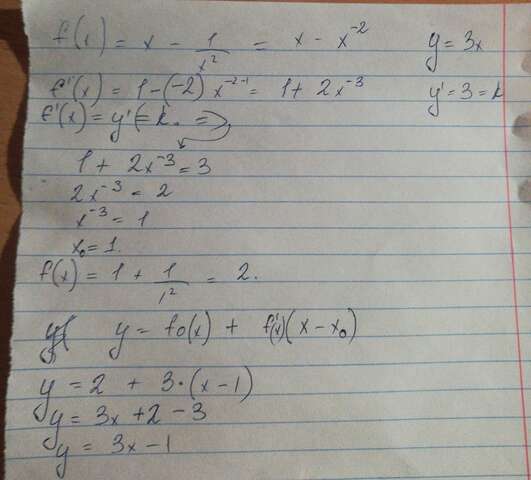 f(x) = x - 1/x² = x - x⁻² y = 3x
f'(x) = 1 - (-2) x⁻²⁻¹ = 1 + 2x⁻³ y' = 3 = k
f'(x) = y' (= k. =>
1 + 2x⁻³ = 3
2x⁻³ = 2
x⁻³ = 1
x₀ = 1.
f(x) = 1 + 1/1² = 2.
y = f₀(x) + f'(x)(x - x₀)
y = 2 + 3·(x - 1)
y = 3x + 2 - 3
y = 3x - 1